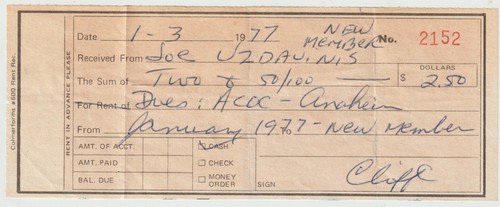 Date 1-3 1977 NEW MEMBER No. 2152
Received From Joe UZDAVINIS
DOLLARS
The Sum of Two & 50/100 — $ 2.50
For Rent of Dues: ACOC - Anaheim
From January 1977 To - New Member
AMT. OF ACCT. CASH
AMT. PAID CHECK
BAL. DUE MONEY ORDER SIGN Cliff
RENT IN ADVANCE PLEASE
Colmerforms #600 Rent Rec.